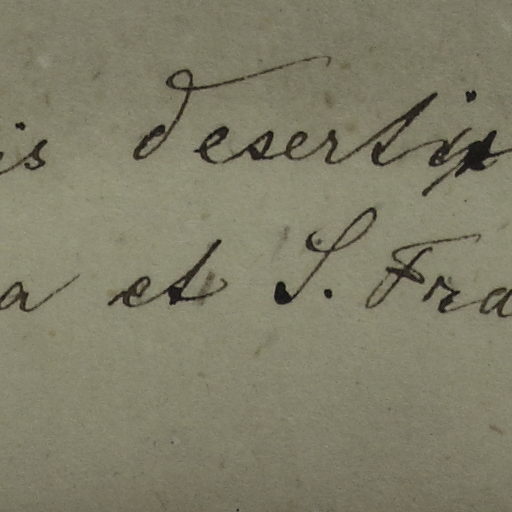 is desertis
a et S. Fra